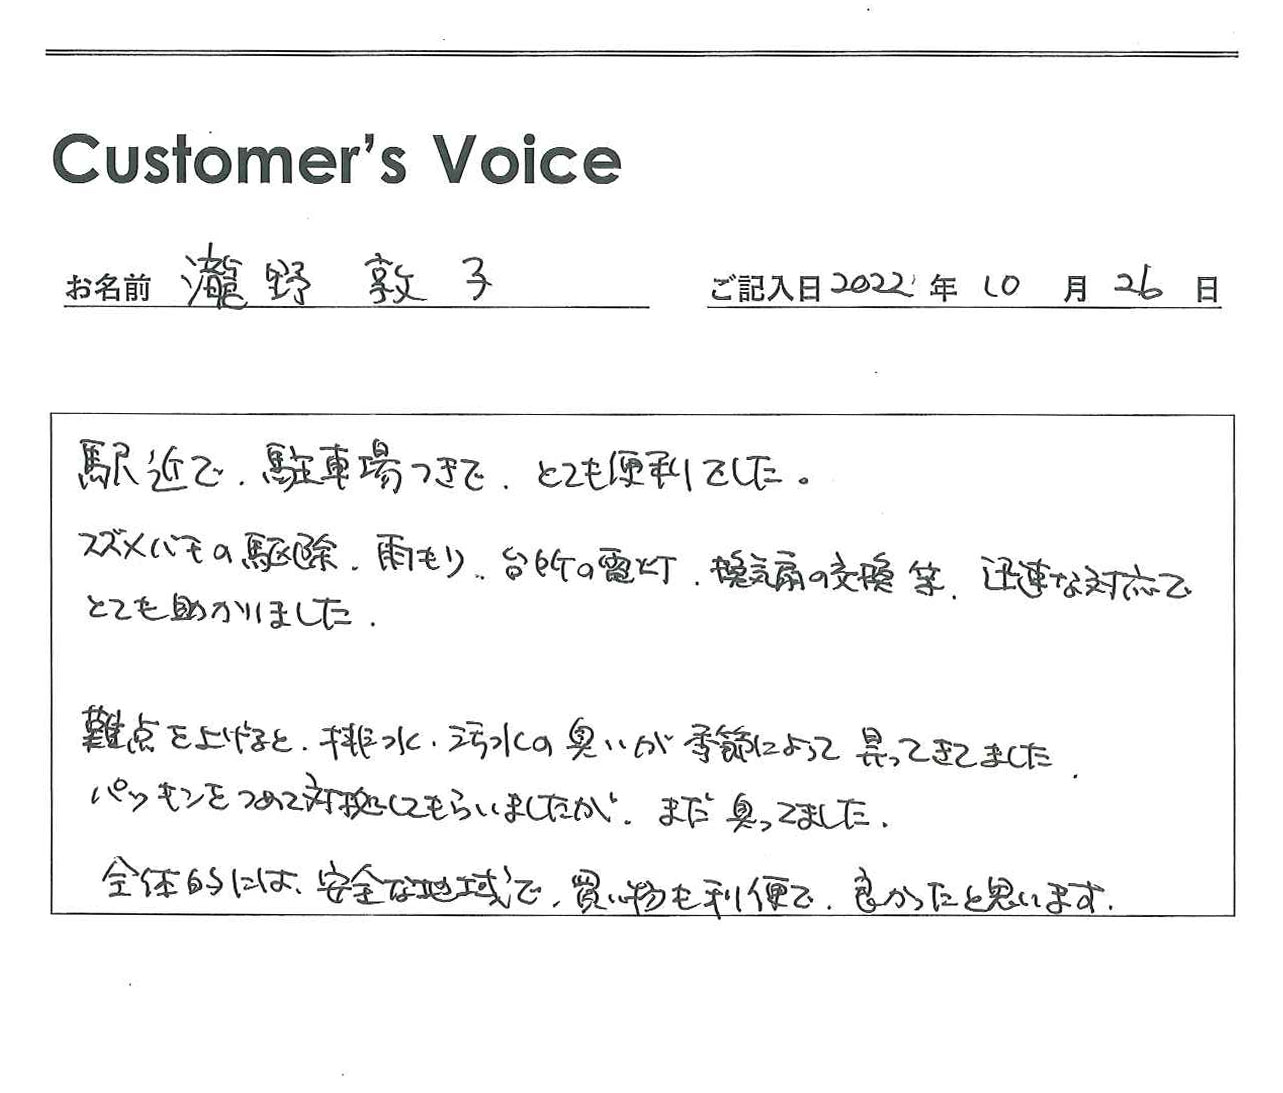 Customer's Voice
お名前 瀧野 敦子
ご記入日 2022 年 10 月 26 日
駅近で、駐車場つきで、とても便利でした。
スズメバチの駆除、雨もり、台所の電灯、換気扇の交換等、迅速な対応で
とても助かりました.
難点を上げると、排水、汚水の臭いが季節によって臭ってきてました.
パッキンをつめて対処してもらいましたが、まだ臭ってました.
全体的には、安全な地域で、買い物も利便で、良かったと思います.